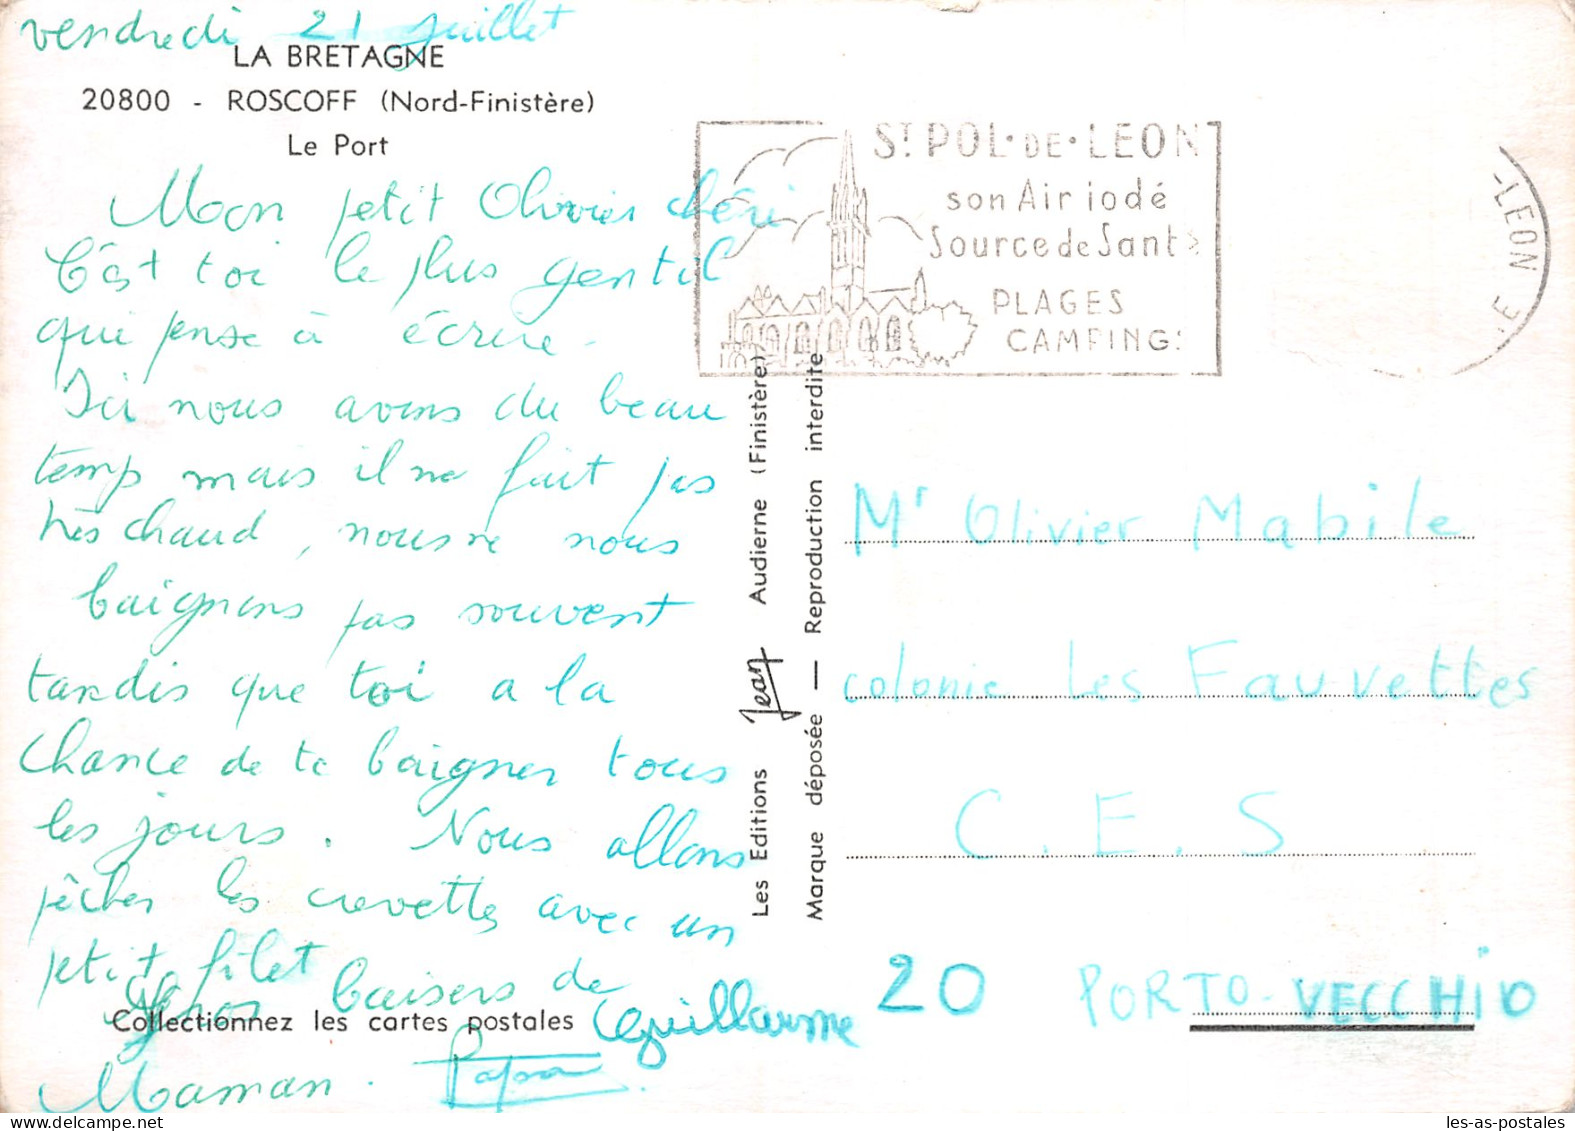 vendredi 21 juillet
LA BRETAGNE
20800 - ROSCOFF (Nord-Finistère)
Le Port
Mon petit Olivier chéri
C'est toi le plus gentil
qui pense à écrire.
Ici nous avons du beau
temps mais il ne fait pas
très chaud, nous ne nous
baignons pas souvent
tandis que toi a la
chance de te baigner tous
les jours. Nous allons
pêcher les crevettes avec un
petit filet
Gros baisers de
Collectionnez les cartes postales
Guillaume
Maman. Papa
Les Editions Jean Audierne (Finistère)
Marque déposée — Reproduction interdite
ST POL·DE·LEON
son Air iodé
Source de Santé
PLAGES
CAMPING
-LEON
Mr Olivier Mabile
colonie Les Fauvettes
C.E.S
20 PORTO-VECCHIO
les-as-postales